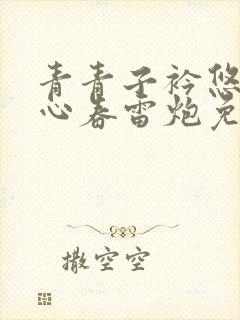 青青子衿悠
心春雷炮免
撒空空